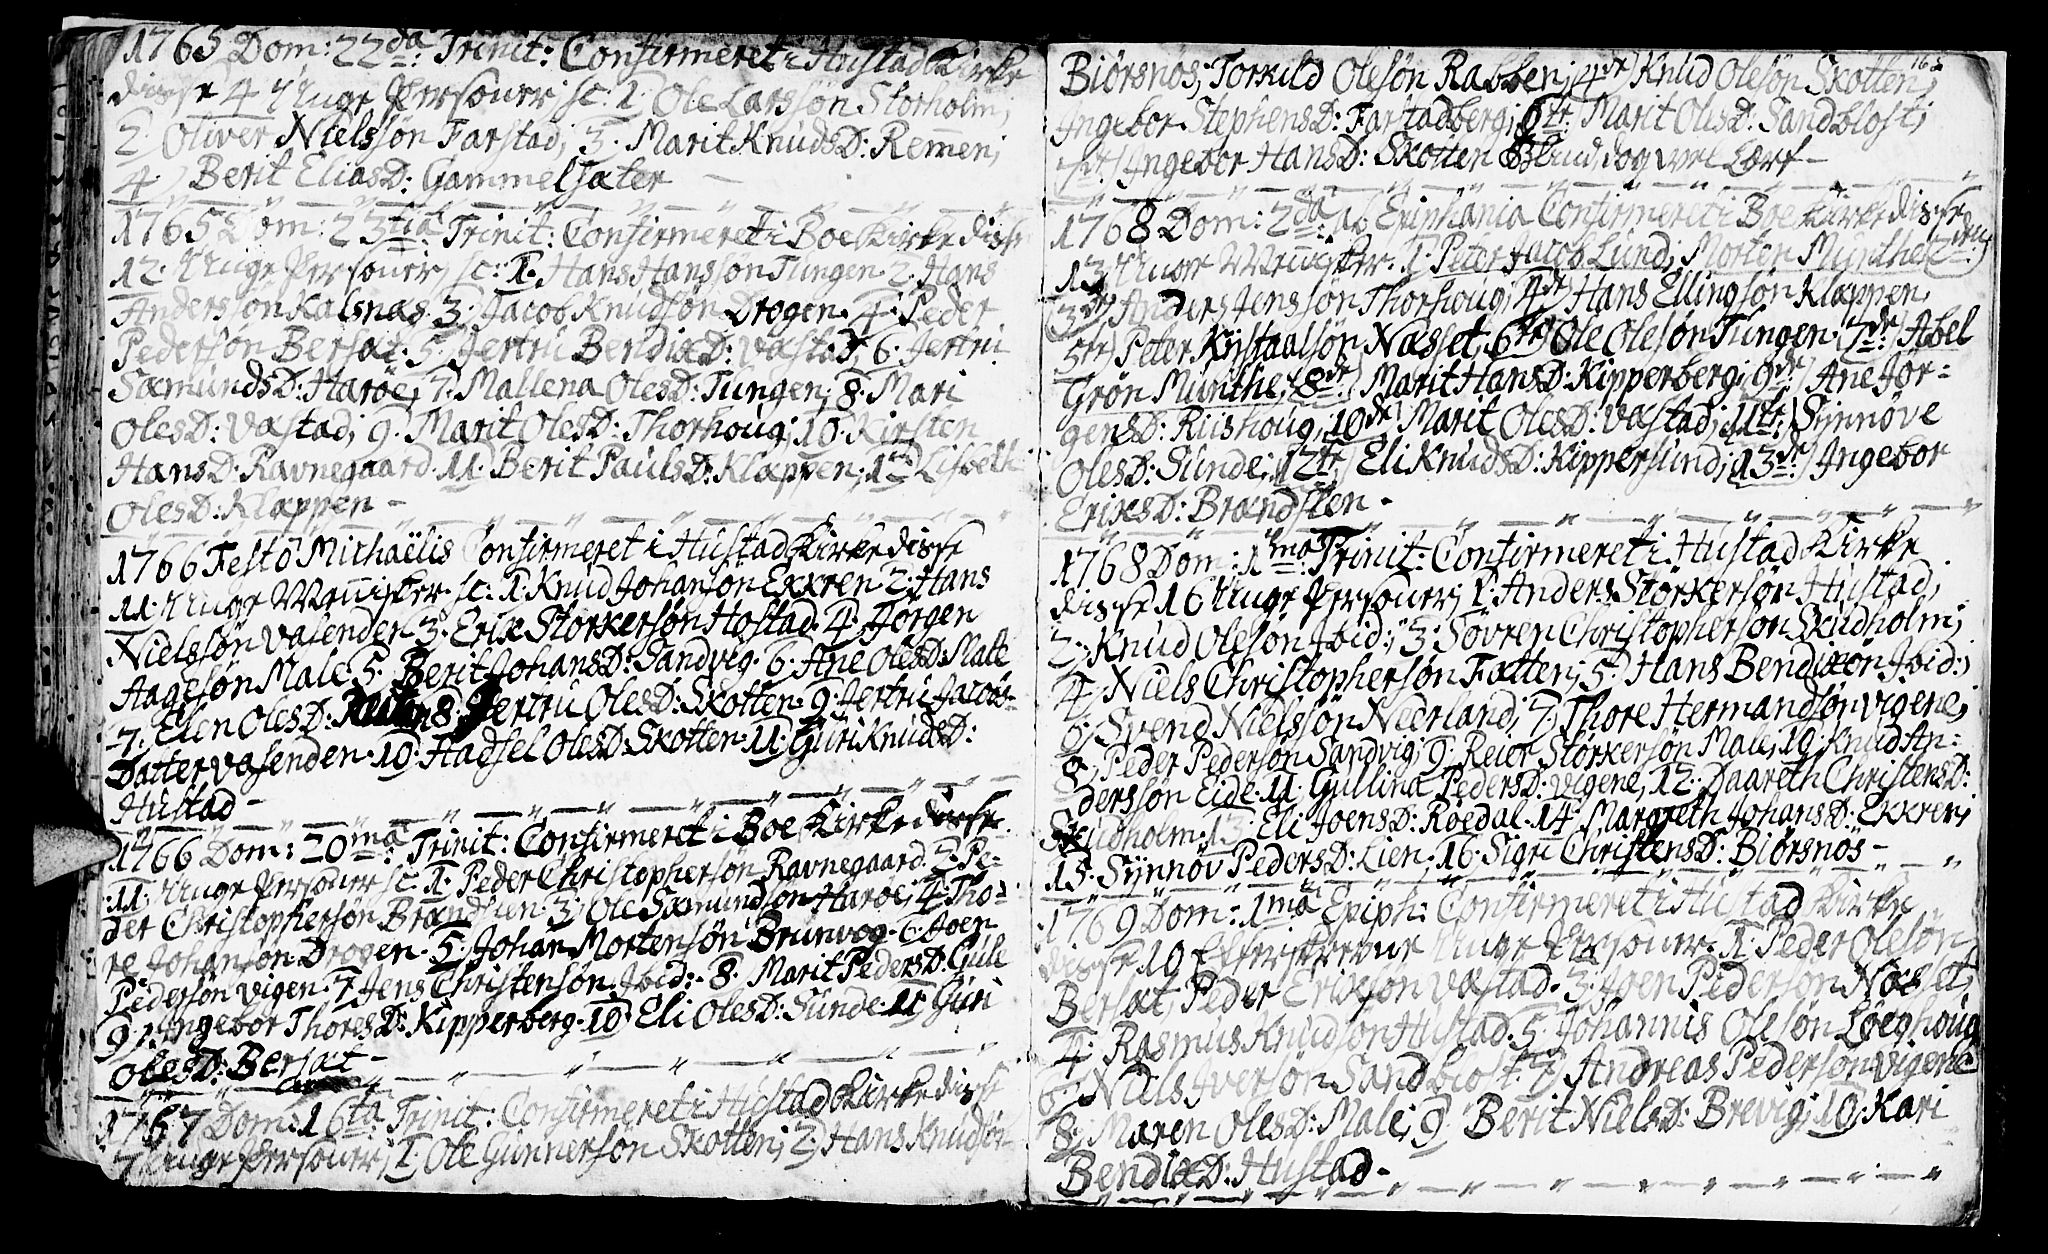 1765 Dom: 22da: Trinit: Confirmeret i Hustad Kirke
disse 4 Unge Personer sc: 1. Ole Larssøn Storholm;
2 Oliver Nielssøn Farstad; 3. Marit KnudsD: Remen;
4. Berit EliasD: Gammelsæter
1765 Dom: 23tia: Trinit: Confirmeret i Boe Kirke disse
12. Unge Personer sc: 1. Hans Hanssøn Tungen 2. Hans
Anderssøn Kalsnæs. 3. Jacob Knudsøn Drogen. 4. Peder
Pedersøn Bersæt. 5. Jertru BendixD: Vast:d, 6. Jertru
SæmundsD: Harøe, 7. Mallena OlesD: Tungen; 8. Mari
OlesD: Vastad; 9. Marit OlesD: Thorhoug; 10. Kirsten
HansD. Ravnegaard. 11. Berit PaulsD: Klappen; 12. Lisbeth
OlesD: Klappen -
1766 Festo Michaëlis Confirmeret i Hustad Kirke disse
11. Unge Mennisker sc: 1. Knud Johansøn Ekkren 2. Hans
Nielssøn Vasenden 3. Erik Størkersøn Hostad. 4. Jørgen
Aagesøn Male. 5. Berit JohansD: Sandvig. 6. Ane OlesD: Male
7. Elen OlesD: 8. Jertru OlesD: Skotten. 9. Jertru Jacobs-
Datter Vasenden. 10. Hadsel OlesD: Skotten. 11. Guri KnudsD:
Hustad -
1766 Dom: 20ma: Trinit: Confirmeret i Boe Kirke disse
11. Unge Personer sc: 1. Peder Christophersøn Ravnegaard. 2. Pe-
der Christophersøn Brandsten. 3. Ole Sæmundsøn Harøe; 4. Tho-
re Johansøn Drogen. 5. Johan Mortensøn Brunvog. 6. Joen
Pedersøn Vigen. 7. Jens Christensøn Ibid:. 8. Marit PedersD. Gule
9. Ingebor ThoresD: Kipperberg. 10. Eli OlesD: Sunde 11. Guri
OlesD: Bersæt -
1767 Dom: 16ta Trinit: Confirmeret i Hustad Kirke disse
7 Unge Personer; 1. Ole Gunnersøn Skotten; 2. Hans Knudsøn
165
Biørsnøs; Torkild Olesøn Rabben; 4de Knud Olesøn Skotten;
Ingebor StephensD: Farstadberg; Marit OlesD: Sandblost;
Ingebor HansD: Skotten Blind dog vel lært -
1768 Dom: 2da ab Epiphania Confirmeret i Boe Kirke disse
13. Unge Mennisker. 1. Peter Jacob Lund; Morten Munthe 2den
3de Anders Jenssøn Thorhoug; 4de Hans Ellingsøn Klappen,
5te Peter Kristaalsøn Næsset, 6te Ole Olesøn Tungen. 7de Abel
Grøn Munthe; 8de Marit HansD: Kipperberg; 9de Ane Jør-
gensD: Riishoug; 10de Marit OlesD: Vastad; 11te Synnøve
OlesD: Sunde; 12te Eli KnudsD: Kippersund; 13de Ingebor
EriksD: Brandsten -
1768 Dom: 1ma: Trinit: Confirmeret i Hustad Kirke
disse 16 Unge Personer; 1. Anders Størkersøn Hustad,
2. Knud Olesøn Ibid:; 3. Søvren Christophersøn Skudholm;
4. Niels Christophersøn Fatten; 5. Hans Bendixøn Ibid:;
6. Svend Nielssøn Nerland; 7. Thore Hermandsøn Vigene;
8. Peder Pedersøn Sandvig; 9. Reior Størkersøn Male; 10. Knud An-
derssøn Eide. 11. Gullina PedersD: Vigene, 12. Daareth ChristensD:
Skudholm. 13. Eli JoensD: Røedal. 14. Margreth JohansD: Ekkren;
15. Synnøv PedersD: Lien; 16. Sigri ChristensD: Biørsnøs -
1769 Dom: 1ma Epiph: Confirmeret i Hustad Kirke
disse 10 Efterskrevne Unge Personer. 1. Peder Olesøn
Bersæt, Peder Eriksøn Vastad. 3. Joen Pedersøn Næsset;
4. Rasmus Knudsøn Hustad. 5. Johannis Olesøn Løeghoug
6. Niels Iversøn Sandblost. 7. Andreas Pedersøn Vigene
8. Maren OlesD: Male; 9. Berit NielsD: Brevig; 10. Kari
BendixD: Hustad -